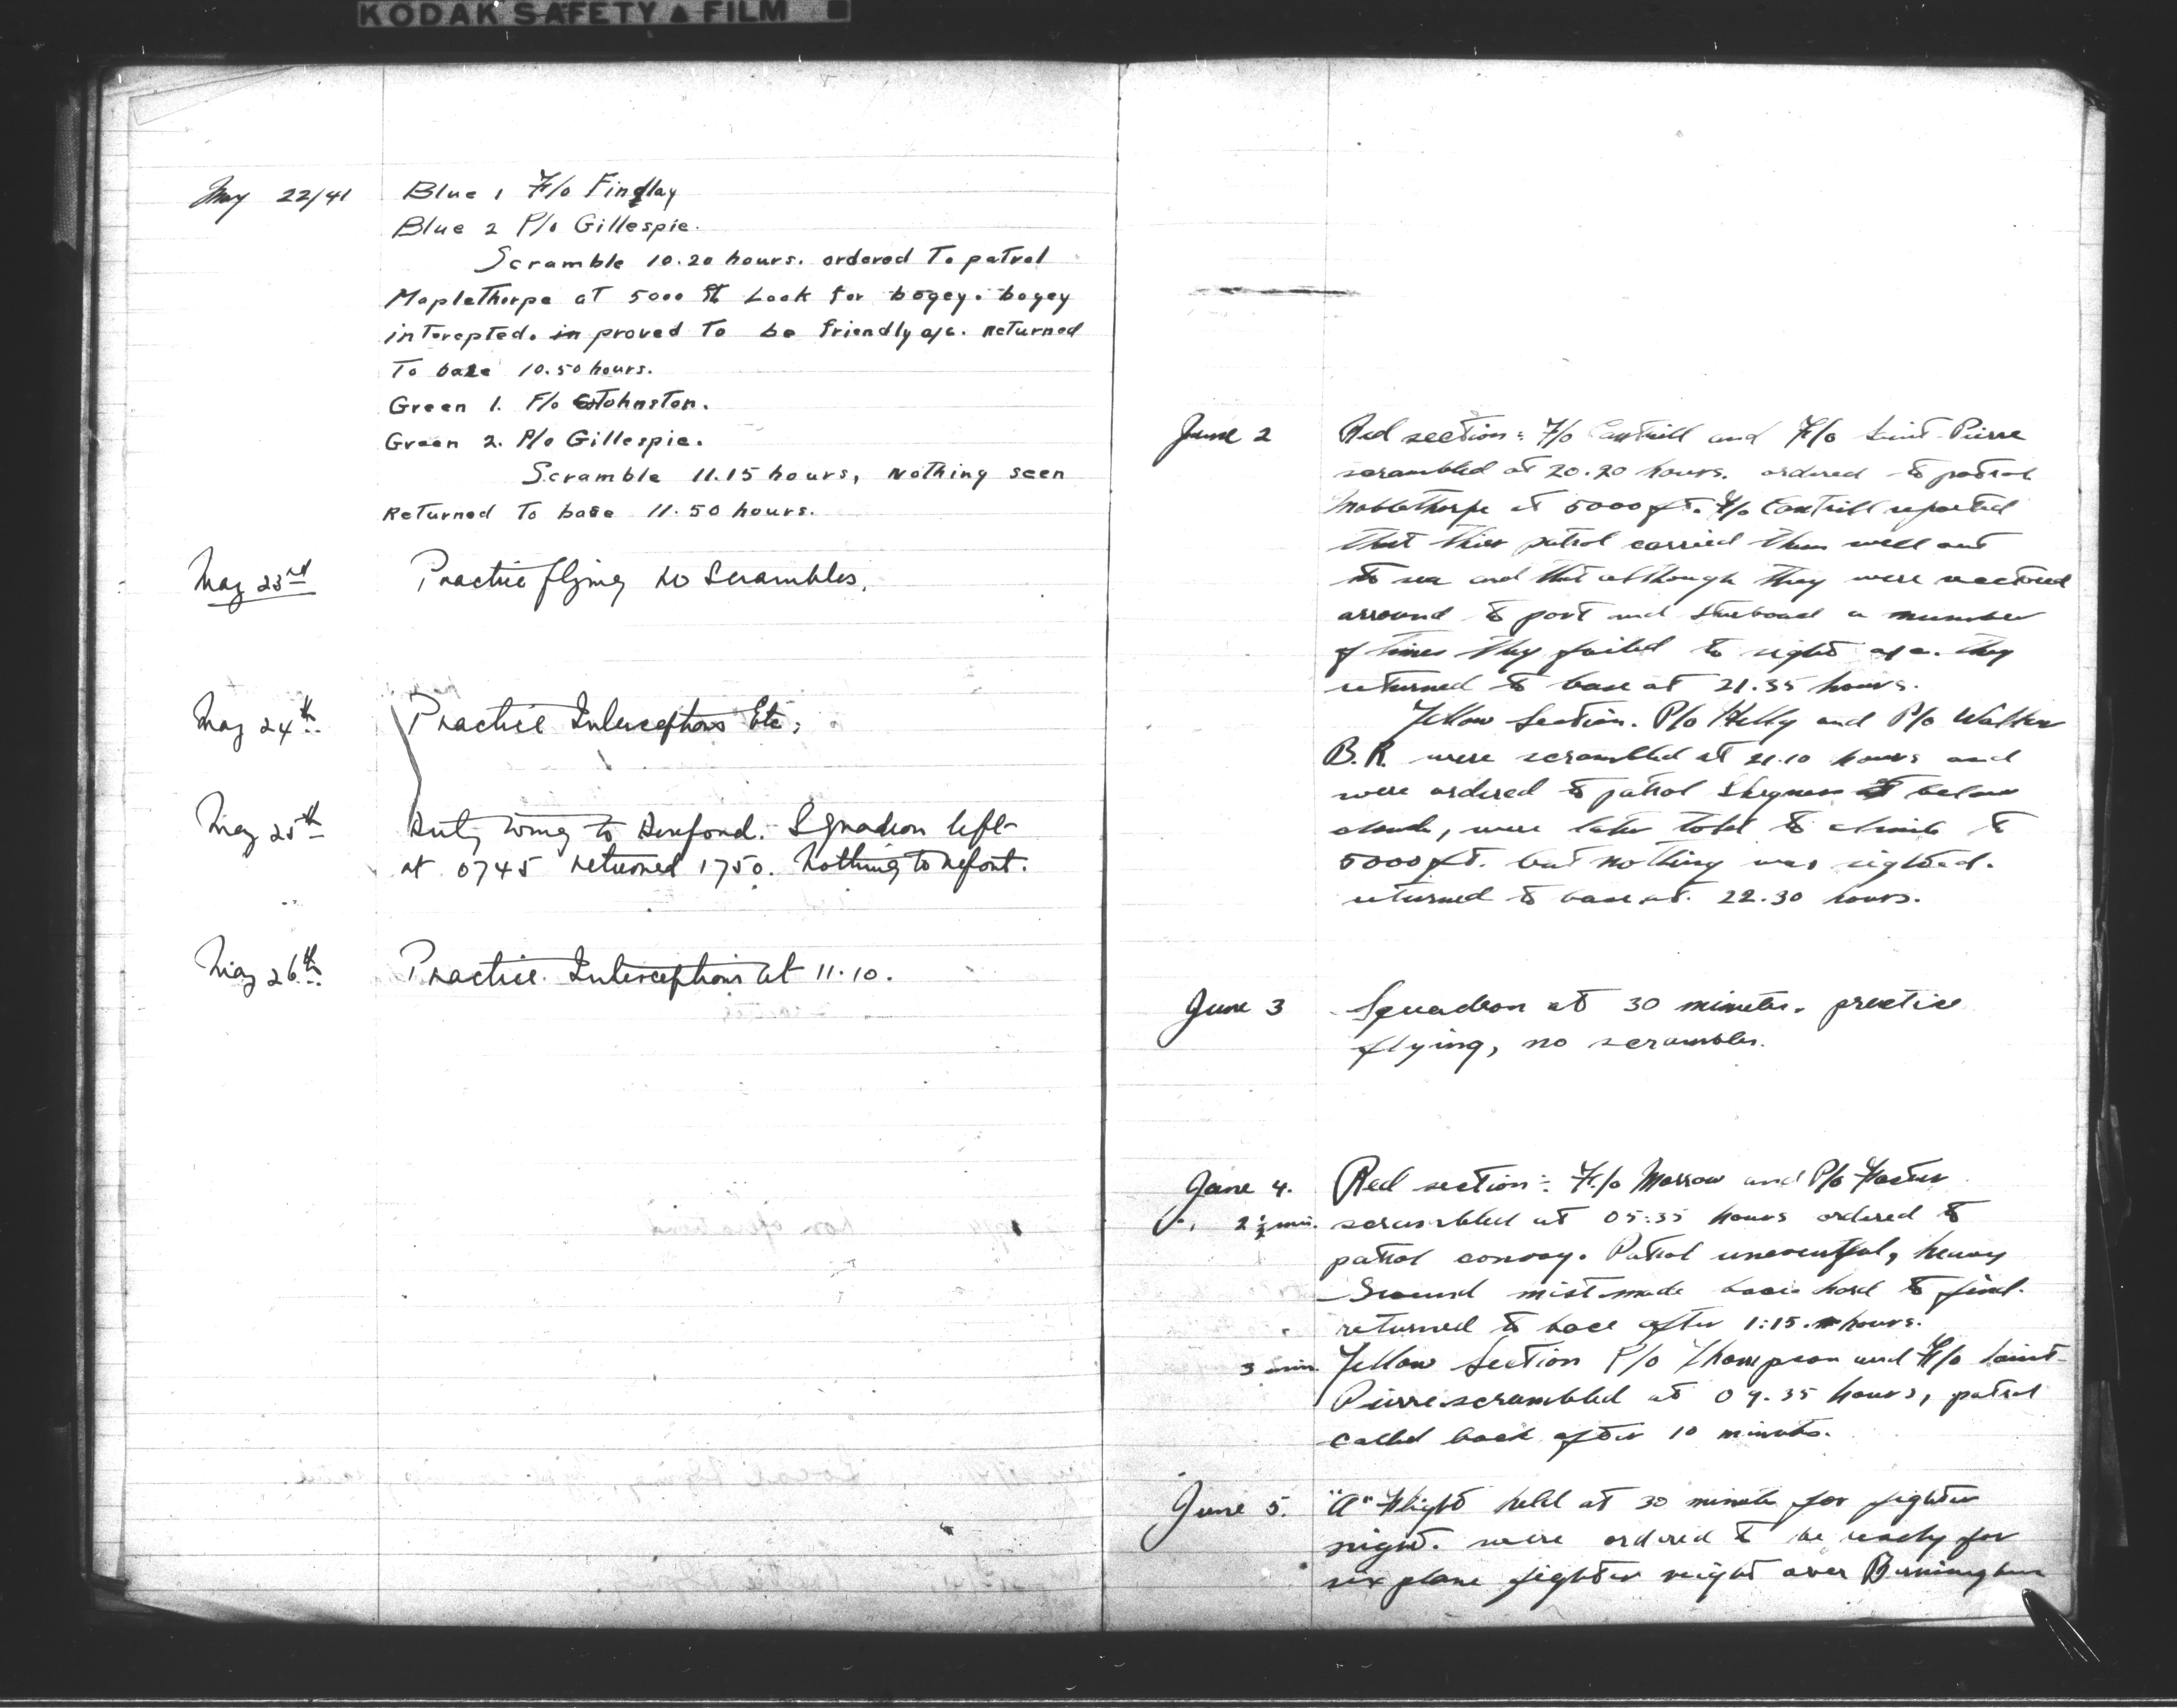 KODAK SAFETY ▲ FILM
May 22/41 Blue 1 F/o Findlay
Blue 2 P/o Gillespie.
Scramble 10.20 hours. ordered To patrol
Maplethorpe at 5000 ft Look for bogey. bogey
intercpted. in proved To be friendly a/c. Returned
To base 10.50 hours.
Green 1. F/o Johnston.
Green 2. P/o Gillespie.
Scramble 11.15 hours, Nothing seen
Returned To base 11.50 hours.
May 23rd Practice flying No Scrambles.
May 24th. Practice Interceptions Etc,
May 25th Duty Wing to Squadron left
at 0745 returned 1750. Nothing to report.
May 26th. Practice Interceptions at 11.10.
June 2 Red section: F/o Cantrill and F/o Saint-Pierre
scrambled at 20.20 hours. ordered to patrol
Mablethorpe at 5000 ft. F/o Cantrill reported
that their patrol carried them well out
to sea and that although they were vectored
arround to port and starboard a number
of times they failed to sight a/c. They
returned to base at 21.35 hours.
Yellow Section. P/o Kelly and P/o Walker
B.R. were scrambled at 21.10 hours and
were ordered to patrol Skegness below
clouds, were later told to climb to
5000 ft. but nothing was sighted.
returned to base at 22.30 hours.
June 3 Squadron at 30 minutes. practice
flying, no scrambles.
June 4. Red section: F/o Morrow and P/o Foster
2½ min. scrambled at 05:35 hours ordered to
patrol convoy. Patrol uneventful, heavy
Ground mist made base hard to find.
returned to base after 1:15 hours.
3 min. Yellow Section P/o Thompson and F/o Saint-
Pierre scrambled at 09.35 hours, patrol
called back after 10 minutes.
June 5. "A" Flight held at 30 minutes for fighter
night. were ordered to be ready for
six plane fighter night over Birmingham